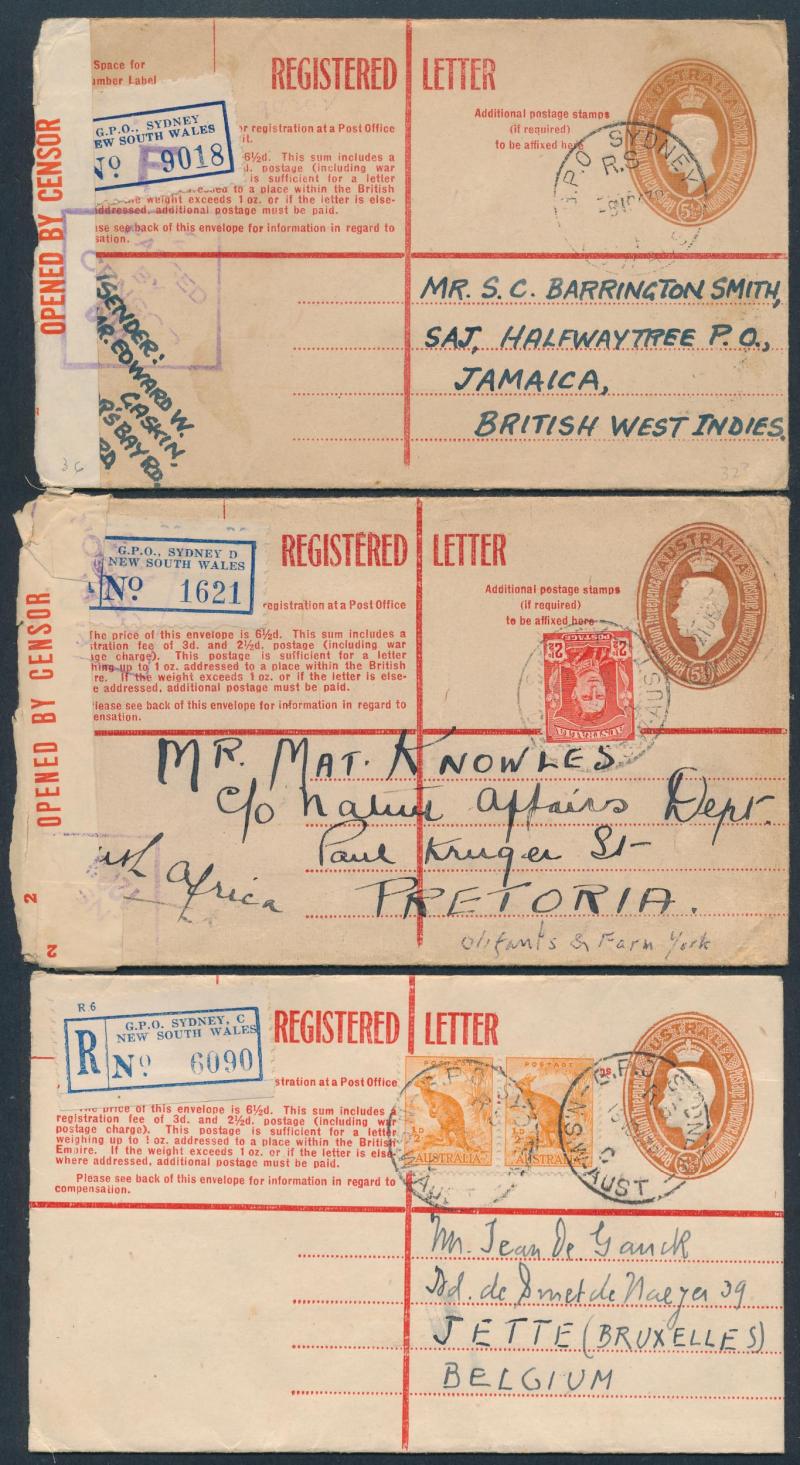 Space for
umber Label
REGISTERED LETTER
G.P.O., SYDNEY
NEW SOUTH WALES
No 9018
or registration at a Post Office
6½d. This sum includes a
d. postage (including war
is sufficient for a letter
dressed to a place within the British
the weight exceeds 1 oz. or if the letter is else-
addressed, additional postage must be paid.
ase see back of this envelope for information in regard to
sation.
Additional postage stamps
(if required)
to be affixed here
AUSTRALIA
5½
G.P.O SYDNEY
R.S
OPENED BY CENSOR
PASSED
BY
CENSOR
SENDER:
MR. EDWARD W.
GASKIN,
R'S BAY RD.
RD.
MR. S. C. BARRINGTON SMITH,
SAJ, HALFWAYTREE P.O.,
JAMAICA,
BRITISH WEST INDIES.
36
REGISTERED LETTER
G.P.O., SYDNEY D
NEW SOUTH WALES
No 1621
registration at a Post Office
The price of this envelope is 6½d. This sum includes a
stration fee of 3d. and 2½d. postage (including war
age charge). This postage is sufficient for a letter
hing up to 1 oz. addressed to a place within the British
re. If the weight exceeds 1 oz. or if the letter is else-
e addressed, additional postage must be paid.
Please see back of this envelope for information in regard to
ensation.
Additional postage stamps
(if required)
to be affixed here
AUSTRALIA
Registration Threepence
5½
POSTAGE
2½d
AUSTRALIA
OPENED BY CENSOR
2
2
MR. MAT. KNOWLES
c/o Native Affairs Dept.
Paul Kruger St
PRETORIA.
uth Africa
Olifants & Farm York
R 6
R
G.P.O. SYDNEY, C
NEW SOUTH WALES
No 6090
REGISTERED LETTER
stration at a Post Office
The price of this envelope is 6½d. This sum includes a
registration fee of 3d. and 2½d. postage (including war
postage charge). This postage is sufficient for a letter
weighing up to 1 oz. addressed to a place within the British
Empire. If the weight exceeds 1 oz. or if the letter is else-
where addressed, additional postage must be paid.
Please see back of this envelope for information in regard to
compensation.
POSTAGE
½d
AUSTRALIA
POSTAGE
½d
AUSTRALIA
G.P.O SYDNEY
C
N.S.W-AUST
AUSTRALIA
5½
Mr. Jean De Ganck
Bd. de Smet de Naeyer 39
JETTE (BRUXELLES)
BELGIUM